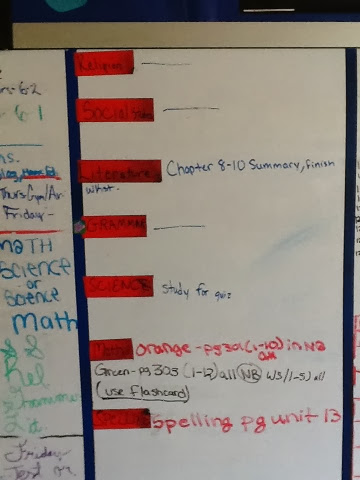 6-2
6-1
Friday-
MATH
Science
or
Science
Math
Rel
Friday
Test or
Religion
Social
Literature Chapter 8-10 Summary, finish
what-
GRAMMA
SCIENCE Study for quiz
Math Orange - pg 301 (1-10) in NB
all
Green - pg 303 (1-12) all (NB) WS (1-5) all
(use flashcard)
Spelling Spelling pg unit 13